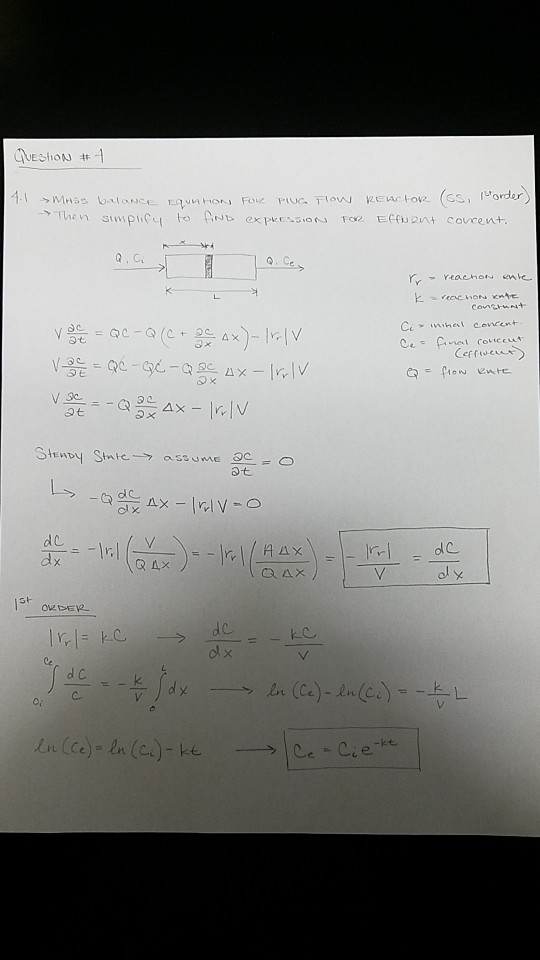 QUESTION #1
4.1 → MASS balance EQUATION FOR PLUG FLOW REACTOR (SS, 1st order)
→ Then simplify to find expression FOR Effluent concent.
x
Q, Ci
Q, Ce
L
rr = reaction rate
k = reaction rate constant
Ci = initial concent.
Ce = final concent (effluent)
Q = flow rate
V ∂C/∂t = QC - Q (C + ∂C/∂x Δx) - |rr| V
V ∂C/∂t = QC - QC - Q ∂C/∂x Δx - |rr| V
V ∂C/∂t = -Q ∂C/∂x Δx - |rr| V
STEADY State → assume ∂C/∂t = 0
↳ -Q dC/dx Δx - |rr| V = 0
dC/dx = -|rr| (V/QΔx) = -|rr| (AΔx/QΔx) = -|rr|/V = dC/dx
1st ORDER
|rr| = kC → dC/dx = -kC/V
∫Ci^Ce dC/C = -k/V ∫0^L dx → ln (Ce) - ln (Ci) = -k/V L
ln (Ce) = ln (Ci) - kt → Ce = Ci e^-kt